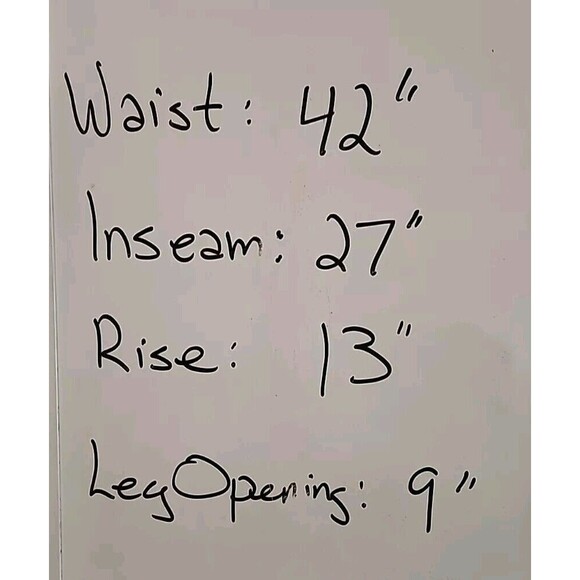 Waist: 42"
Inseam: 27"
Rise: 13"
Leg Opening: 9"